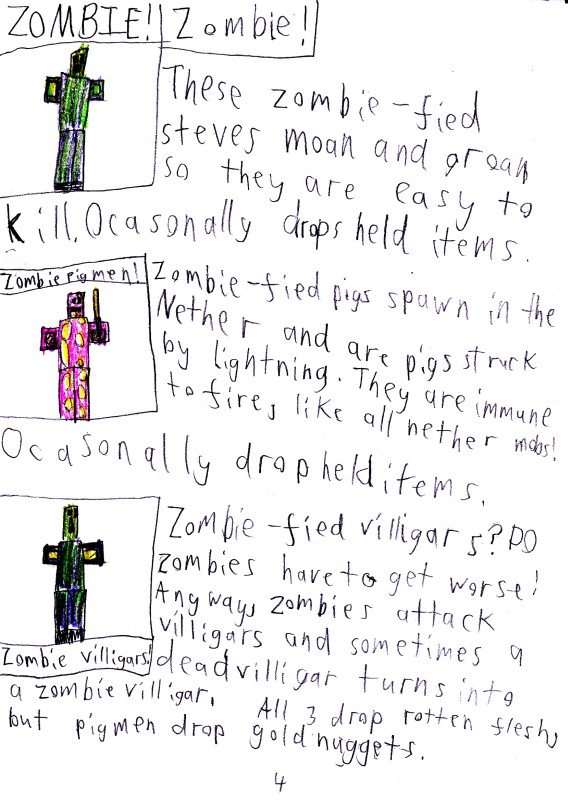 ZOMBIE! Zombie!
These zombie-fied
steves moan and groan
so they are easy to
kill. Ocasonally drops held items.
Zombie pigmen!
Zombie-fied pigs spawn in the
Nether and are pigs struck
by lightning. They are immune
to fire, like all nether mobs!
Ocasonally drop held items.
Zombie-fied villigars? DO
zombies have to get worse!
Anyways zombies attack
villigars and sometimes a
Zombie villigars!
dead villigar turns into
a zombie villigar. All 3 drop rotten flesh,
but pigmen drop gold nuggets.
4